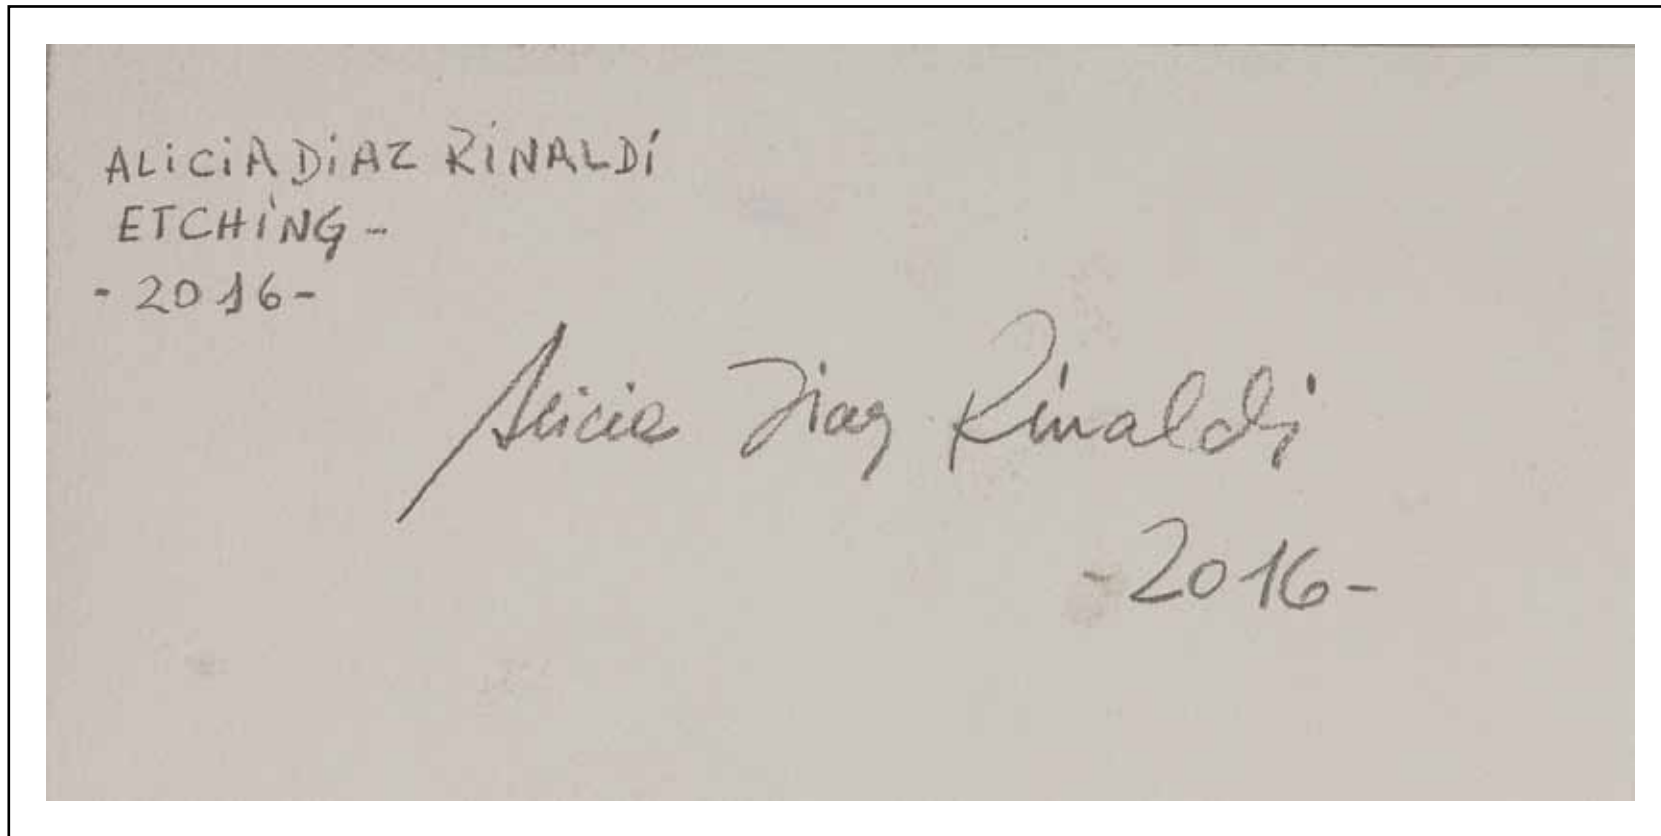 ALiCiA DiAZ RiNALDi
ETCHiNG -
- 2016 -
Alicia Diaz Rinaldi
- 2016 -